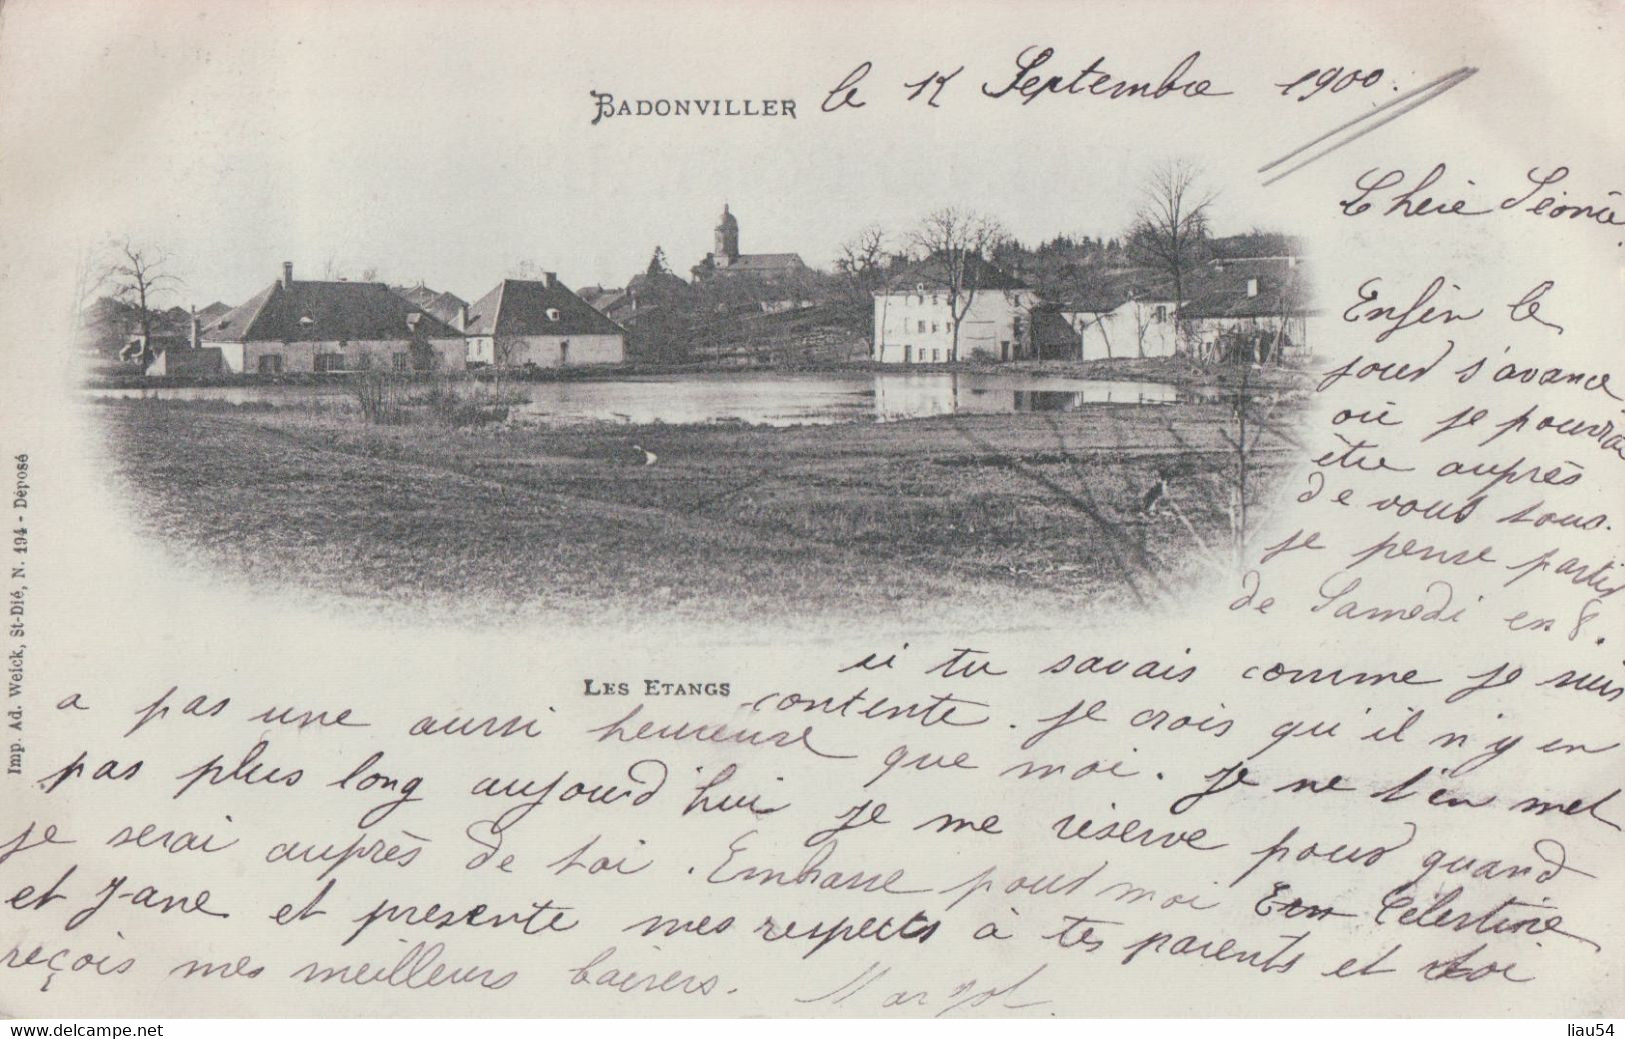 BADONVILLER le 12 Septembre 1900.
Chère Léonie
Enfin le
jour s'avance
où je pourrai
être auprès
de vous tous.
je pense partir
de Samedi en 8.
si tu savais comme je suis
LES ETANGS
contente. je crois qu'il n'y en
a pas une aussi heureuse que moi. je ne t'en met
pas plus long aujourd'hui je me réserve pour quand
je serai auprès de toi. Embrasse pour moi Célestine
et Jane et presente mes respects à tes parents et toi
reçois mes meilleurs baisers. Margot
Imp. Ad. Weick, St-Dié, N. 194 - Déposé
www.delcampe.net
liau54